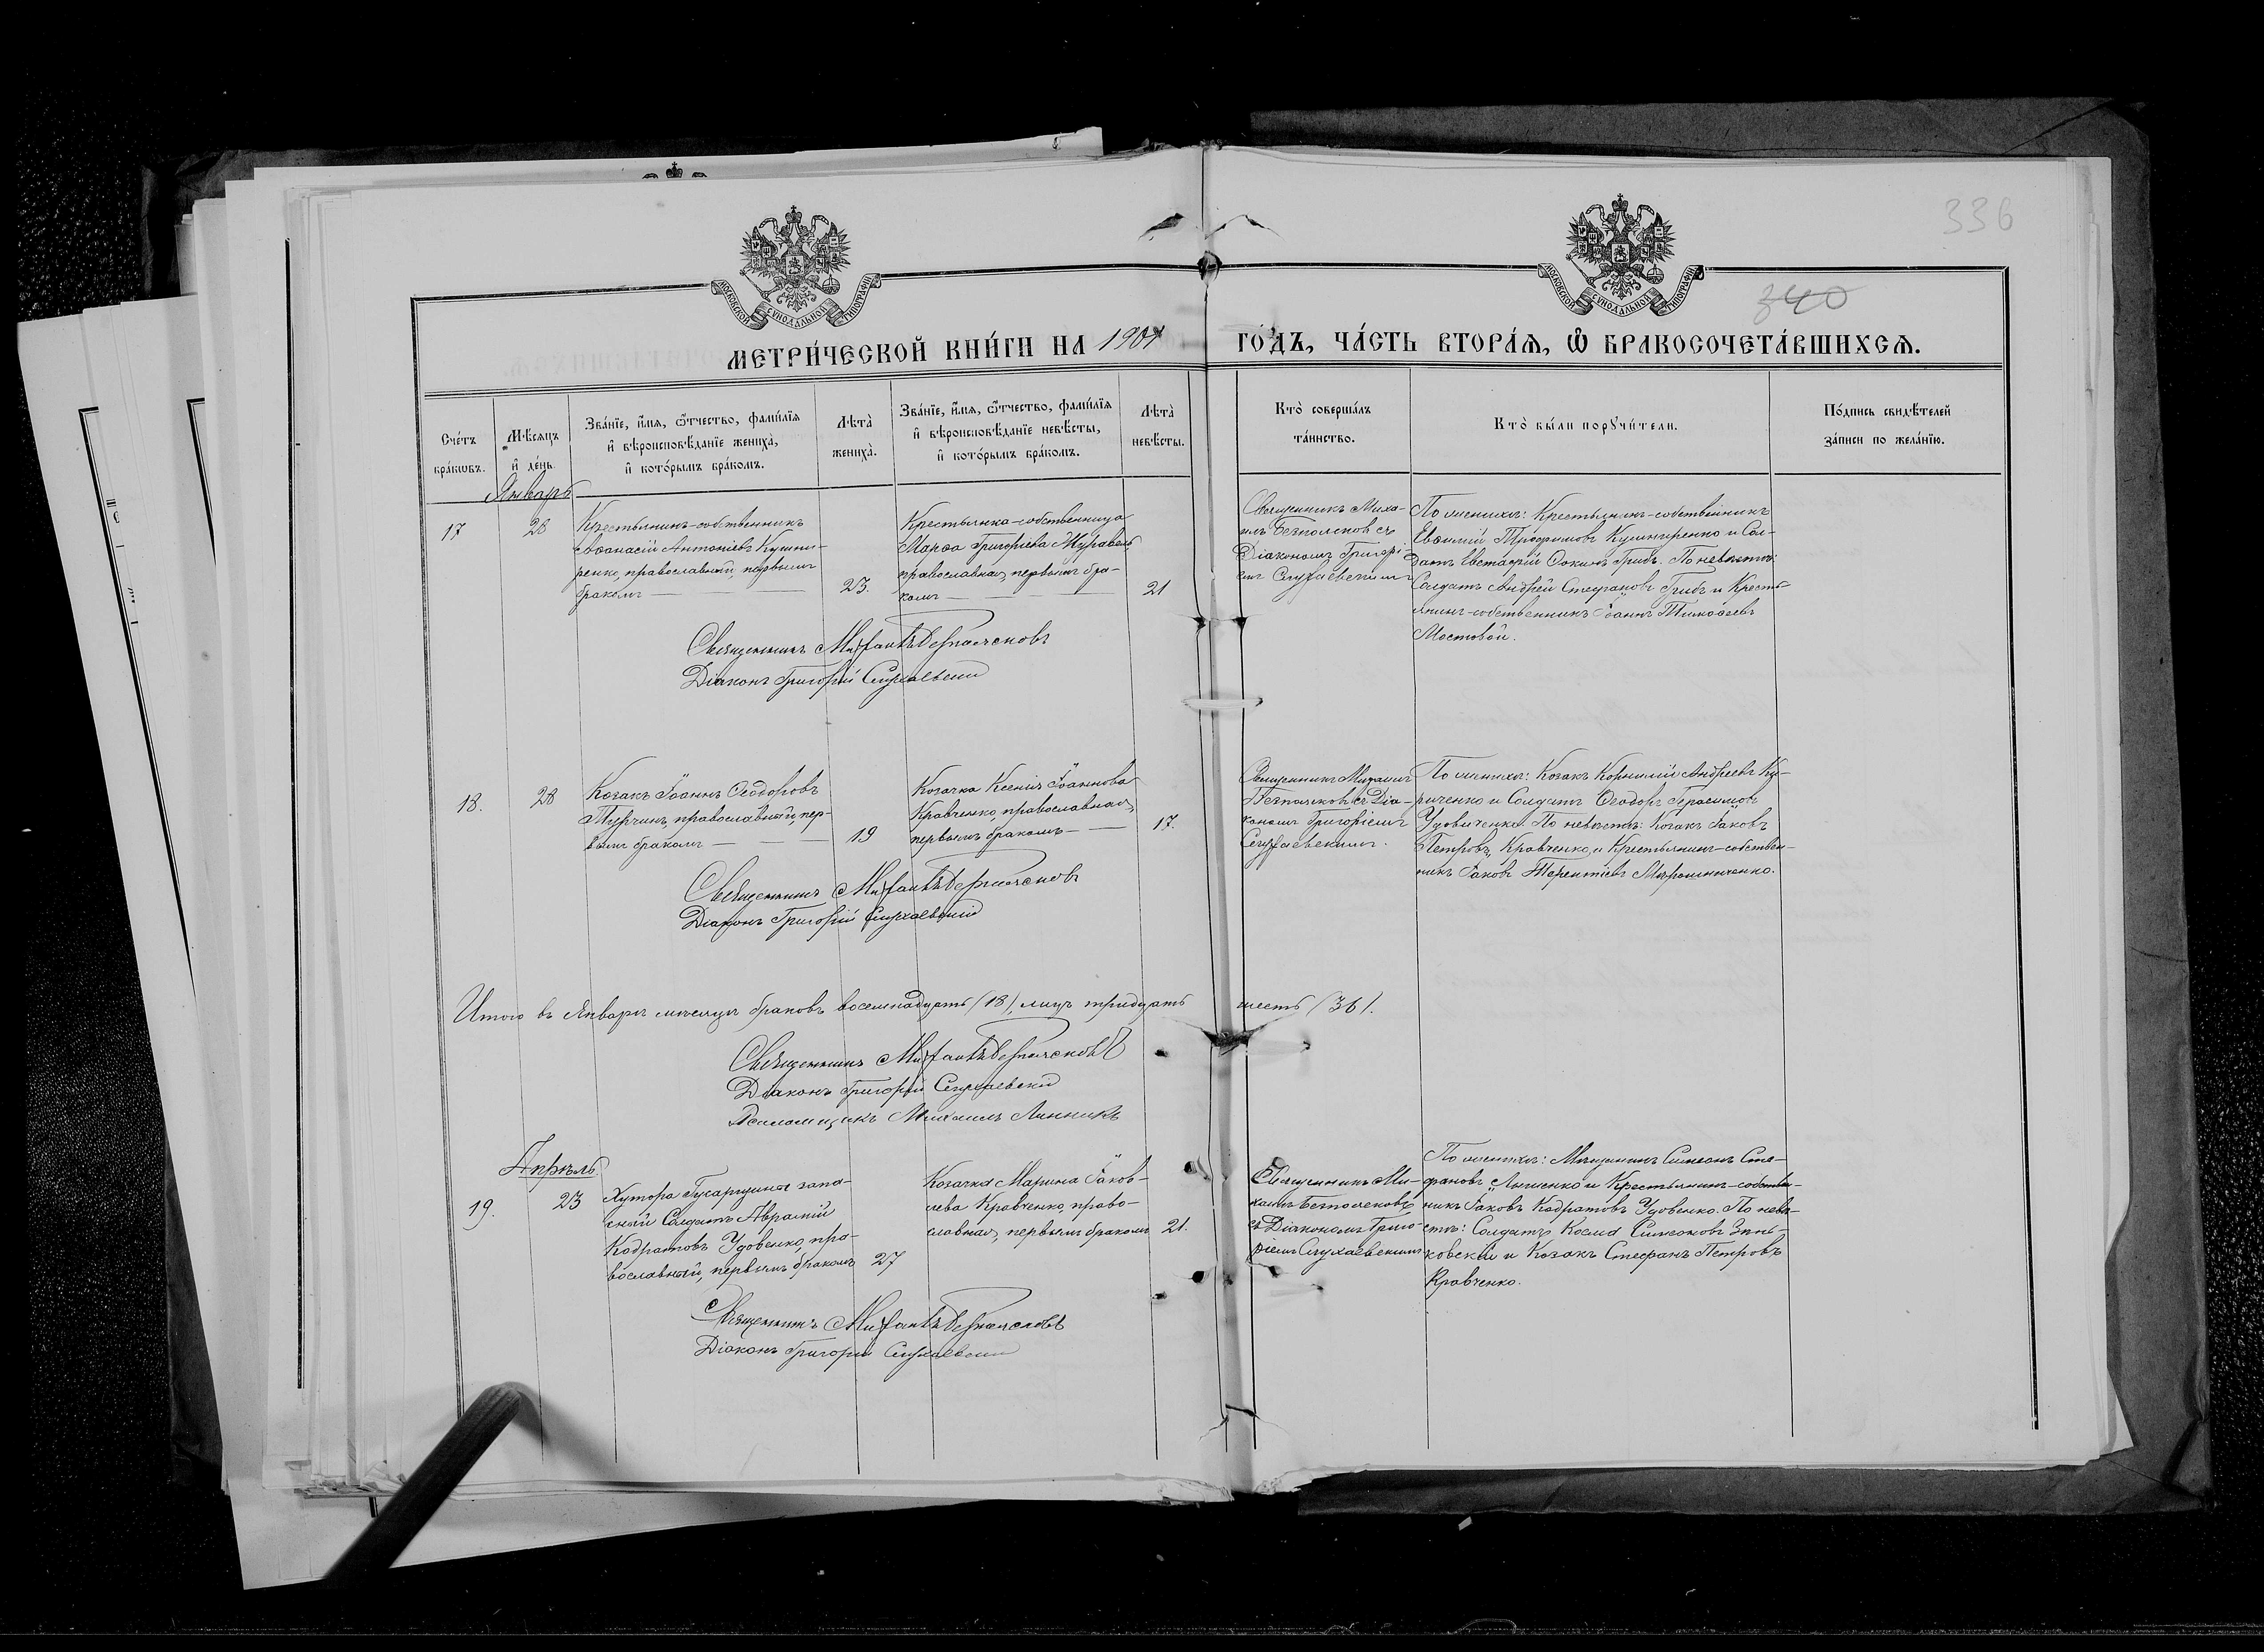 336
340
МОСКОВСКОЙ СѴНОДАЛЬНОЙ ТИПОГРАФІИ
МОСКОВСКОЙ СѴНОДАЛЬНОЙ ТИПОГРАФІИ
МЕТРИ́ЧЕСКОЙ КНИ́ГИ НА 1907 ГО́ДЪ, ЧА́СТЬ ВТОРА́Ѧ, Ѿ БРАКОСОЧЕТА́ВШИХСѦ.
Сче́тъ бра́кѡвъ.
Мѣ́сяцъ и҆ де́нь.
Зва́нїе, и҆́мѧ, ѻ҆́тчество, фами́лїѧ и҆ вѣроисповѣ́данїе жениха̀, и҆ кото́рымъ бра́комъ.
Лѣта̀ жениха̀.
Зва́нїе, и҆́мѧ, ѻ҆́тчество, фами́лїѧ и҆ вѣроисповѣ́данїе невѣ́сты, и҆ кото́рымъ бра́комъ.
Лѣта̀ невѣ́сты.
Кто̀ соверша́лъ та́инство.
Кто̀ бы́ли порꙋчи́тели.
По́дпись свидѣ́телей за́писи по жела́нїю.
Январь
17
28
Крестьянинъ-собственникъ
Аѳанасій Антоніевъ Кушни-
ренко, православный, первымъ
бракомъ
23.
Крестьянка-собственница
Марѳа Григоріева Журавель,
православная, первымъ бра-
комъ
21
Священникъ Миха-
илъ Безпалсковъ съ
Діакономъ Григорі-
емъ Слухаевскимъ
По женихѣ: Крестьянинъ-собственникъ
Евѳимій Трофимовъ Кушниренко и Сол-
датъ Евстафій Ѳокинъ Грибъ. По невѣстѣ:
Солдатъ Андрей Стефановъ Грибъ и Кресть-
янинъ-собственникъ Іоаннъ Тимоѳеевъ
Мостовой.
Священникъ Михаилъ Безпалсковъ
Діаконъ Григорій Слухаевскій
18.
28
Козакъ Іоаннъ Ѳеодоровъ
Турчинъ, православный, пер-
вымъ бракомъ
19
Козачка Ксенія Іоаннова
Кравченко, православная,
первымъ бракомъ
17.
Священникъ Михаилъ
Безпалсковъ съ Діа-
кономъ Григоріемъ
Слухаевскимъ.
По женихѣ: Козакъ Корнилій Андреевъ Ку-
риченко и Солдатъ Ѳеодоръ Герасимовъ
Удовиченко. По невѣстѣ: Козакъ Іаковъ
Петровъ Кравченко и Крестьянинъ-собствен-
никъ Іаковъ Терентіевъ Мирошниченко.
Священникъ Михаилъ Безпалсковъ
Діаконъ Григорій Слухаевскій
Итого въ Январѣ мѣсяцѣ браковъ восемнадцать (18), лицъ тридцать шесть (36).
Священникъ Михаилъ Безпалсковъ
Діаконъ Григорій Слухаевскій
Псаломщикъ Михаилъ Линникъ
Апрѣль.
19.
23
Хутора Гусарщина запа-
сный Солдатъ Аврамій
Кодратовъ Удовенко, пра-
вославный, первымъ бракомъ
27
Козачка Марина Іаков-
лева Кравченко, право-
славная, первымъ бракомъ
21.
Священникъ Ми-
хаилъ Безпалсковъ
съ Діакономъ Григо-
ріемъ Слухаевскимъ
По женихѣ: Мѣщанинъ Симеонъ Сте-
фановъ Ляшенко и Крестьянинъ-собствен-
никъ Іаковъ Кодратовъ Удовенко. По невѣ-
стѣ: Солдатъ Косма Симеоновъ Зинь-
ковскій и Козакъ Стефанъ Петровъ
Кравченко.
Священникъ Михаилъ Безпалсковъ
Діаконъ Григорій Слухаевскій